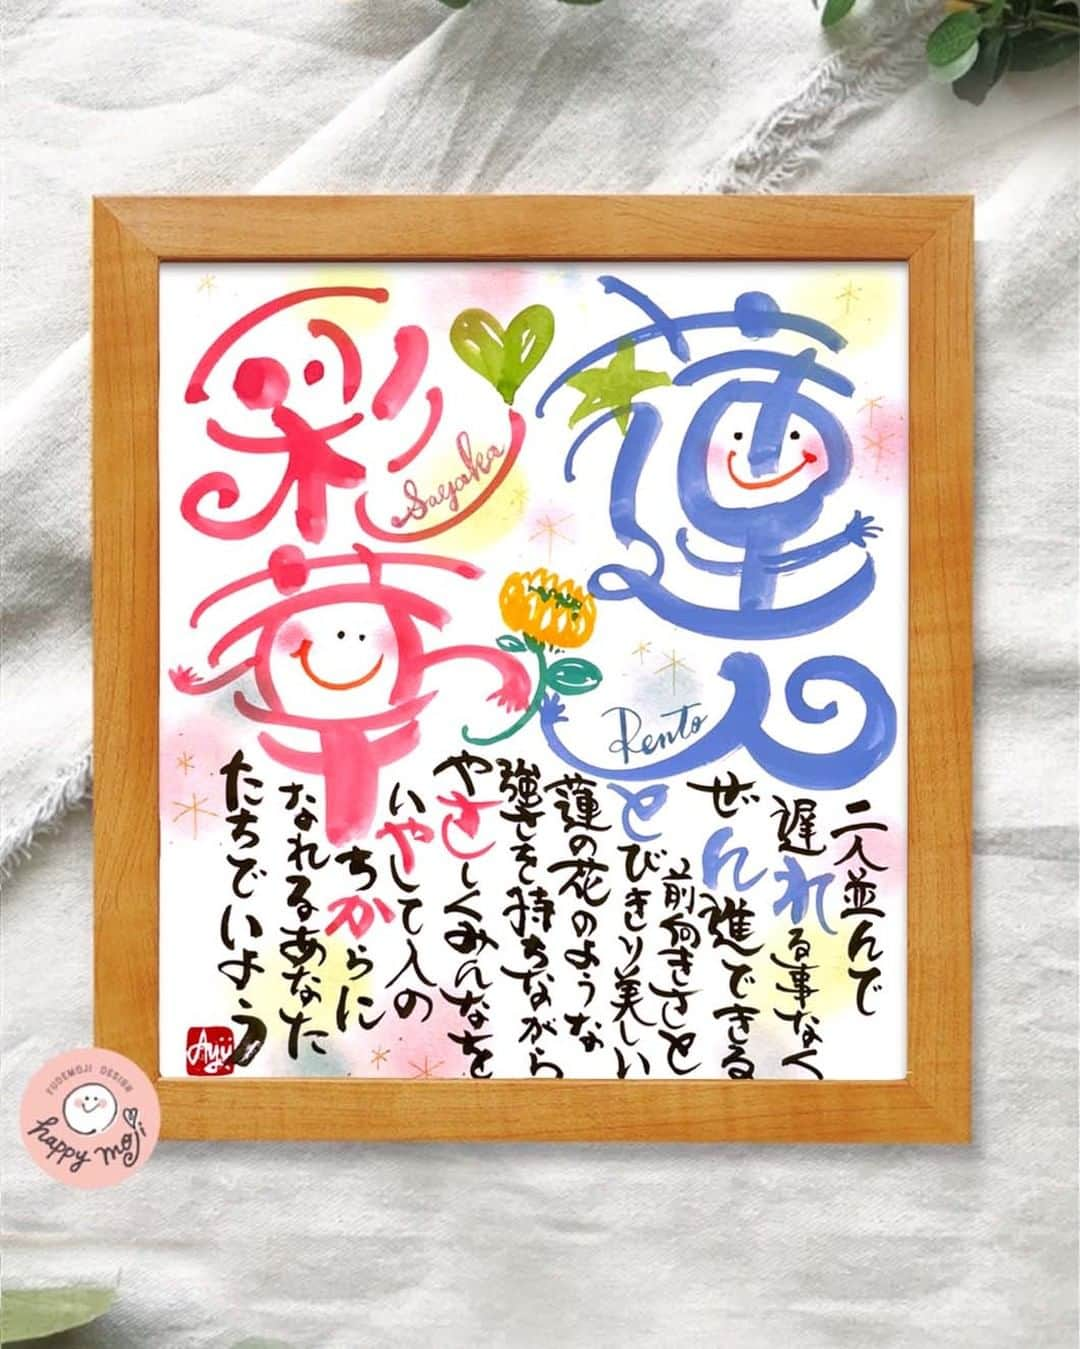 蓮人
Rento
彩草
Sayaka
二人並んで
遅れる事なく
ぜん進できる
前向きさと
とびきり美しい
蓮の花のような
強さを持ちながら
やさしくみんなを
いやして人の
ちからに
なれるあなた
たちでいよう
FUDEMOJI DESIGN
happy moji